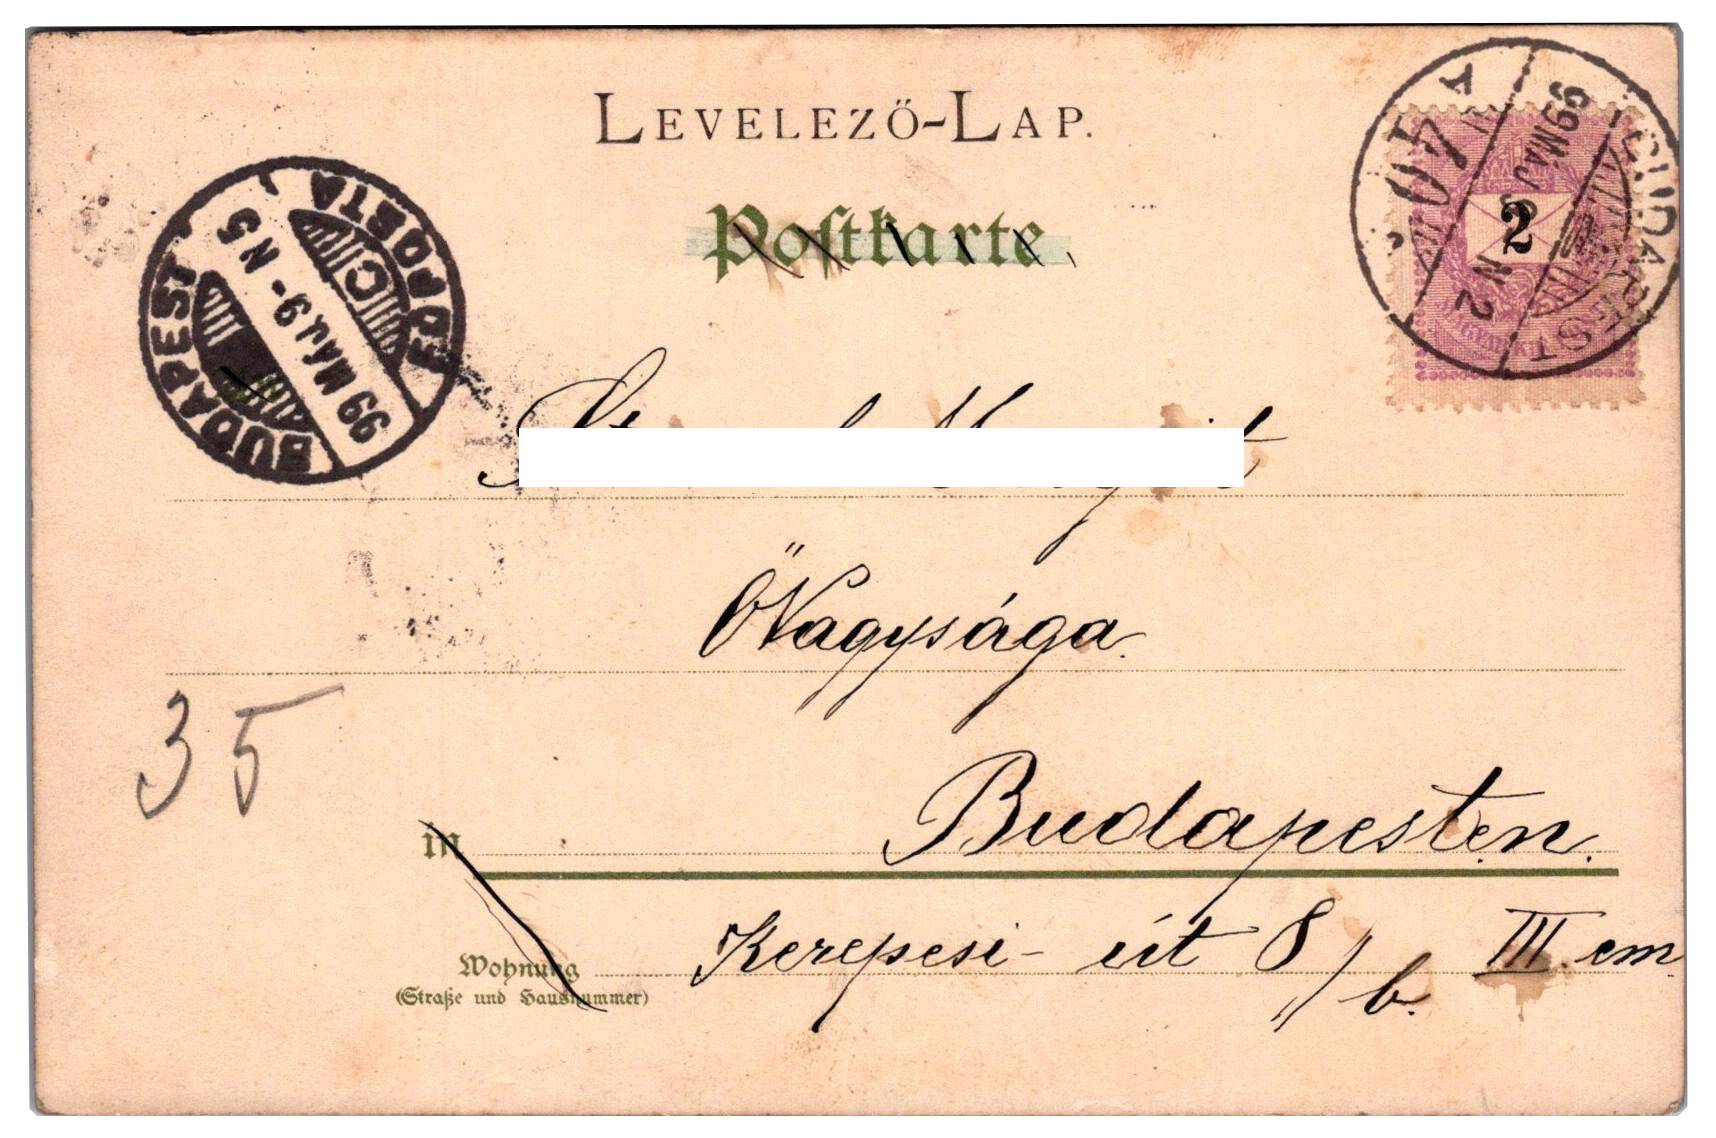 LEVELEZŐ-LAP.
Postkarte
BUDAPEST
FŐPOSTA
99 MÁJ. 9 - N 5
C
BUDAPEST
99 MAJ N 2
2
Őnagysága
35
in
Budapesten.
Wohnung
(Straße und Hausnummer)
Kerepesi-út 8/b. III. em